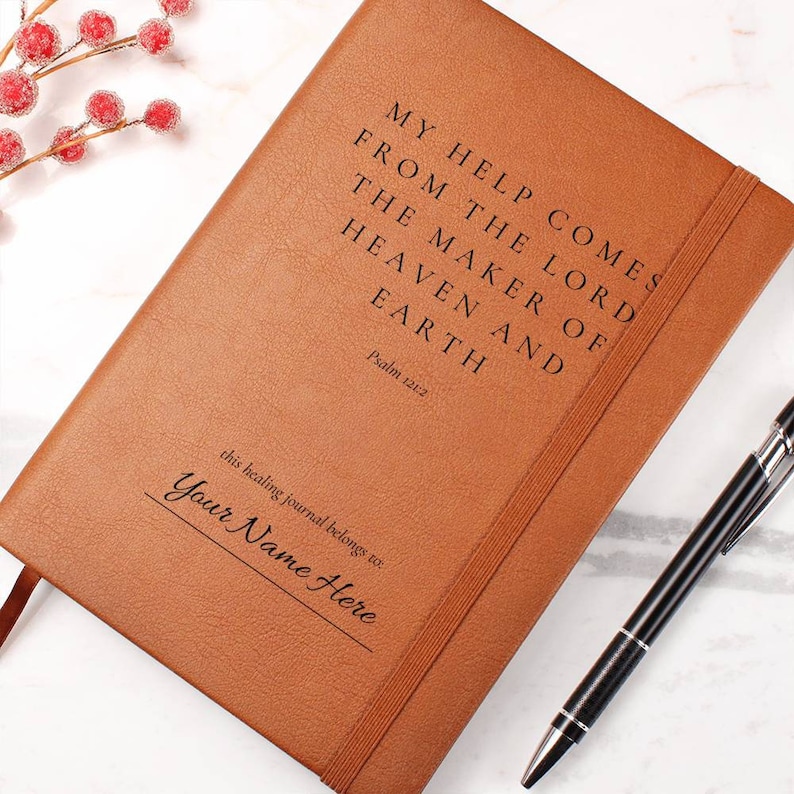 MY HELP COMES
FROM THE LORD
THE MAKER OF
HEAVEN AND
EARTH
Psalm 121:2
this healing journal belongs to:
Your Name Here